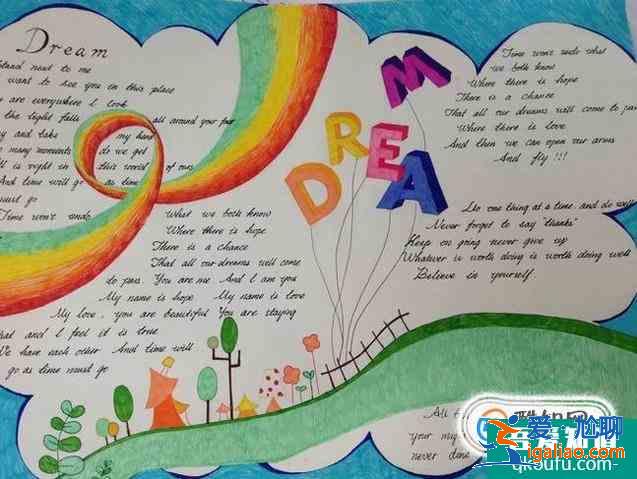 Dream
Stand next to me
want to see you in this place
are everywhere I look
the light falls all around your feet
and take my hand
many moments do we get
is right in this world of ours
And time will go as time
must go
Time won't undo
What we both know
Where there is hope
There is a chance
That all our dreams will come
to pass. You are me And I am you
My name is hope My name is love
My love, you are beautiful You are staying
that and I feel it is true
We have each other And time will
go as time must go
DREAM
Time won't undo what
we both know
Where there is hope
There is a chance
That all our dreams will come to pass
Where there is love
And then we can open our arms
And fly!!!
Do one thing at a time, and do well
Never forget to say "thanks"
Keep on going never give up
Whatever is worth doing is worth doing well
Believe in yourself.
All
your my
never done
爱·尬聊
igaliao.com